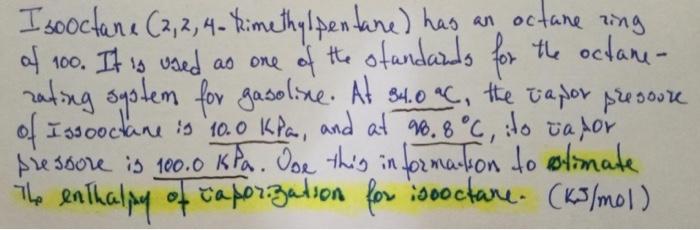 Isooctane (2,2,4-trimethylpentane) has an octane ring
of 100. It is used as one of the standards for the octane-
rating system for gasoline. At 34.0 °C, the vapor pressure
of Issooctane is 10.0 KPa, and at 98.8°C, its vapor
pressure is 100.0 KPa. Use this information to estimate
The enthalpy of vaporization for isooctane. (KJ/mol)